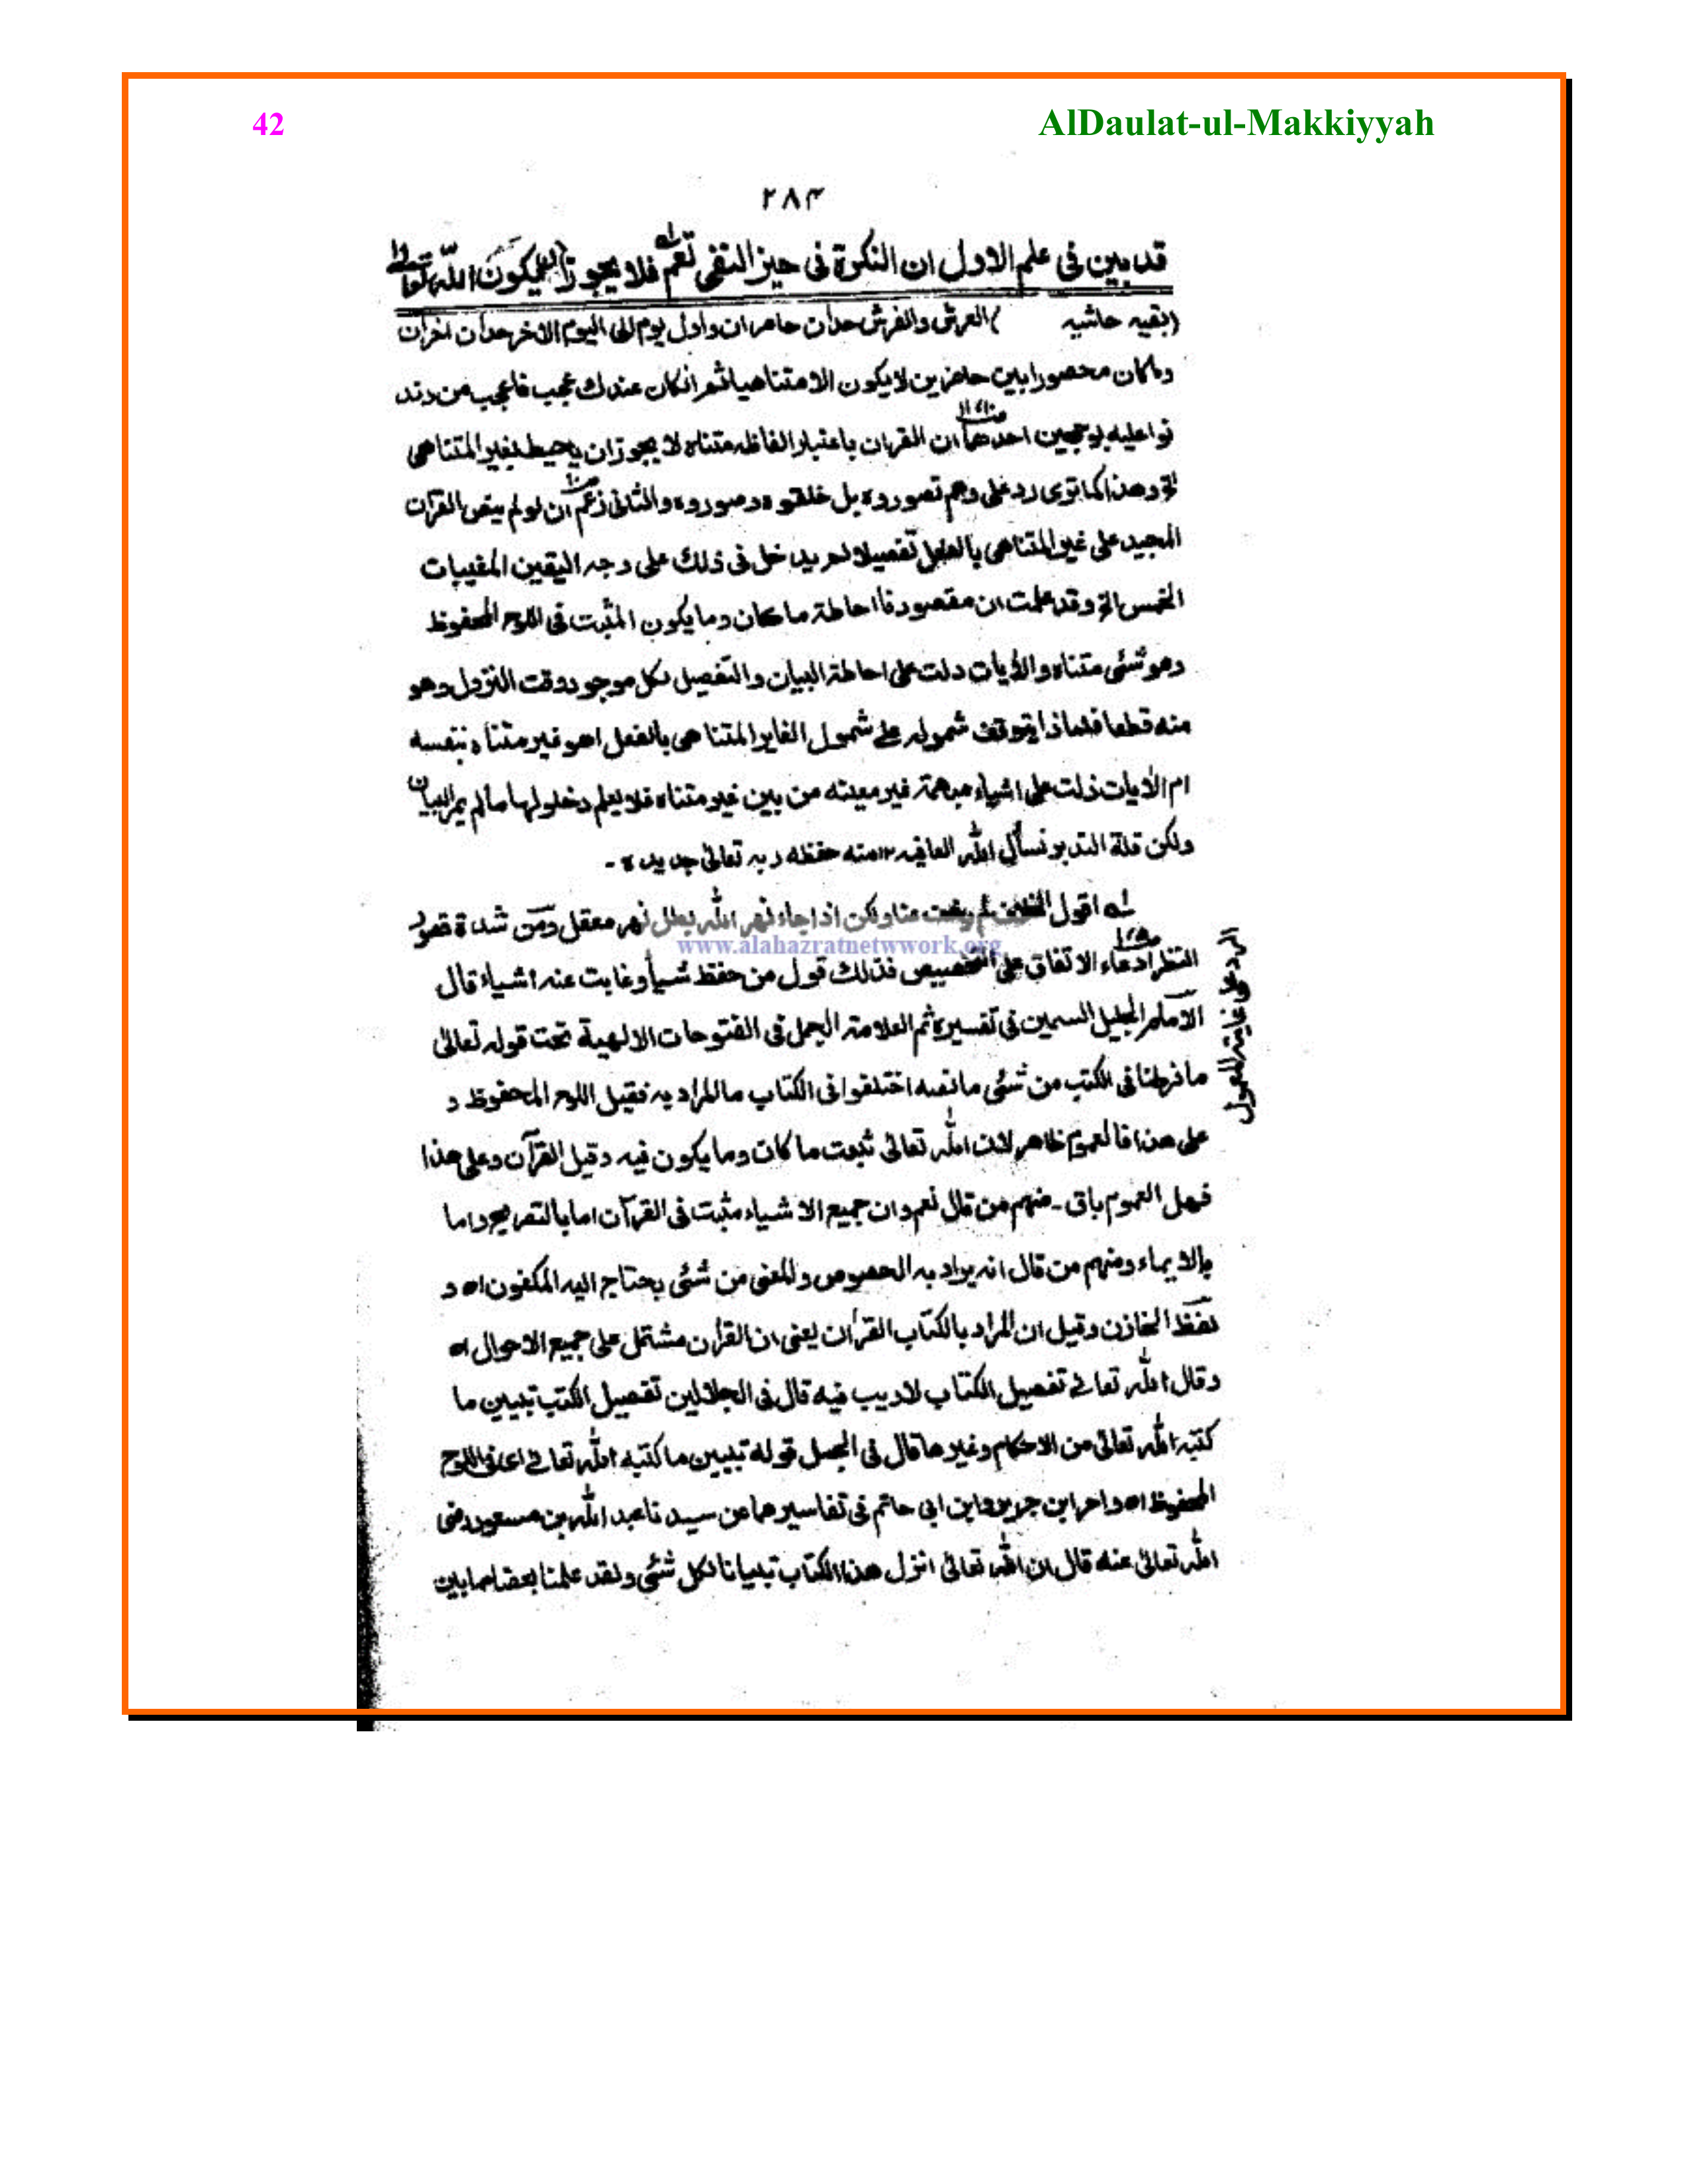 42
AlDaulat-ul-Makkiyyah
۲۸۴
قد بين فى علم الاول ان النكرة فى حيز النفى تعم فلا يجوز ان يكون الله تعالى
(بقيه حاشيه ) العرش والفرش حدان حاصران واول يوم الى اليوم الاخر حدان اخران
وماكان محصورا بين حاصرين لا يكون الا متناهيا ثم انكان عندك عجب فاعجب من
عليه بوجهين احدهما ان القران باعتبار الفاظه متناه لا يجوز ان يحيط بغير المتناهى
الخ وهذا كما ترى رد على وهم تصوروه بل خلقوه وصوروه والثانى زعم ان لو لم ينص القرآن
المجيد على غير المتناهى بالفعل تفصيلا لم يدخل فى ذلك على وجه اليقين المغيبات
الخمس الخ وقد علمت ان مقصودنا احاطة ماكان وما يكون المثبت فى اللوح المحفوظ
وهو شئى متناه والأيات دلت على احاطة البيان والتفصيل لكل موجود وقت النزول وهو
منه قطعا فلماذا يتوقف شموله على شمول الغاير المتناهى بالفعل اهو غير متناه بنفسه
ام الأيات دلت على اشياء مبهمة غير معينه من بين غير متناه فلا يعلم دخولها مالم يمر البيان
ولكن قلة التدبر نسأل الله العافيه ١٢ منه حفظه ربه تعالى جديده -
له اقول ولكن اذا جاء نهر الله بطل نهر معقل ومن شدة قصور
النظر ادعاء الاتفاق على التخصيص فذلك قول من حفظ شيأ وغابت عنه اشياء قال
الامام الجليل السمين فى تفسيره ثم العلامة الجمل فى الفتوحات الالهية تحت قوله تعالى
ما فرطنا فى الكتب من شئى ما نصه اختلفوا فى الكتاب ما المراد به فقيل اللوح المحفوظ و
على هذا فالعموم ظاهر لان الله تعالى ثبت ما كان وما يكون فيه وقيل القرآن وعلى هذا
فهل العموم باقى ـ منهم من قال نعم وان جميع الاشياء مثبت فى القرآن اما بالتصريح واما
بالايماء ومنهم من قال انه يراد به الخصوص والمعنى من شئى يحتاج اليه المكلفون اه و
لفظ الخازن وقيل ان المراد بالكتاب القرأن يعنى ان القرأن مشتمل على جميع الاحوال اه
وقال الله تعالى تفصيل الكتاب لاريب فيه قال فى الجلالين تفصيل الكتب تبيين ما
كتبه الله تعالى من الاحكام وغيرها قال فى الجمل قوله تبيين ما كتبه الله تعالى اى فى اللوح
المحفوظ اه ابن جرير وابن ابى حاتم فى تفاسيرهما عن سيدنا عبد الله بن مسعود رضى
الله تعالى عنه قال ان الله تعالى انزل هذا الكتاب تبيانا لكل شئى ولقد علمنا بعضا مما بين
الرد على غاية المامول
www.alahazratnetwwork.org